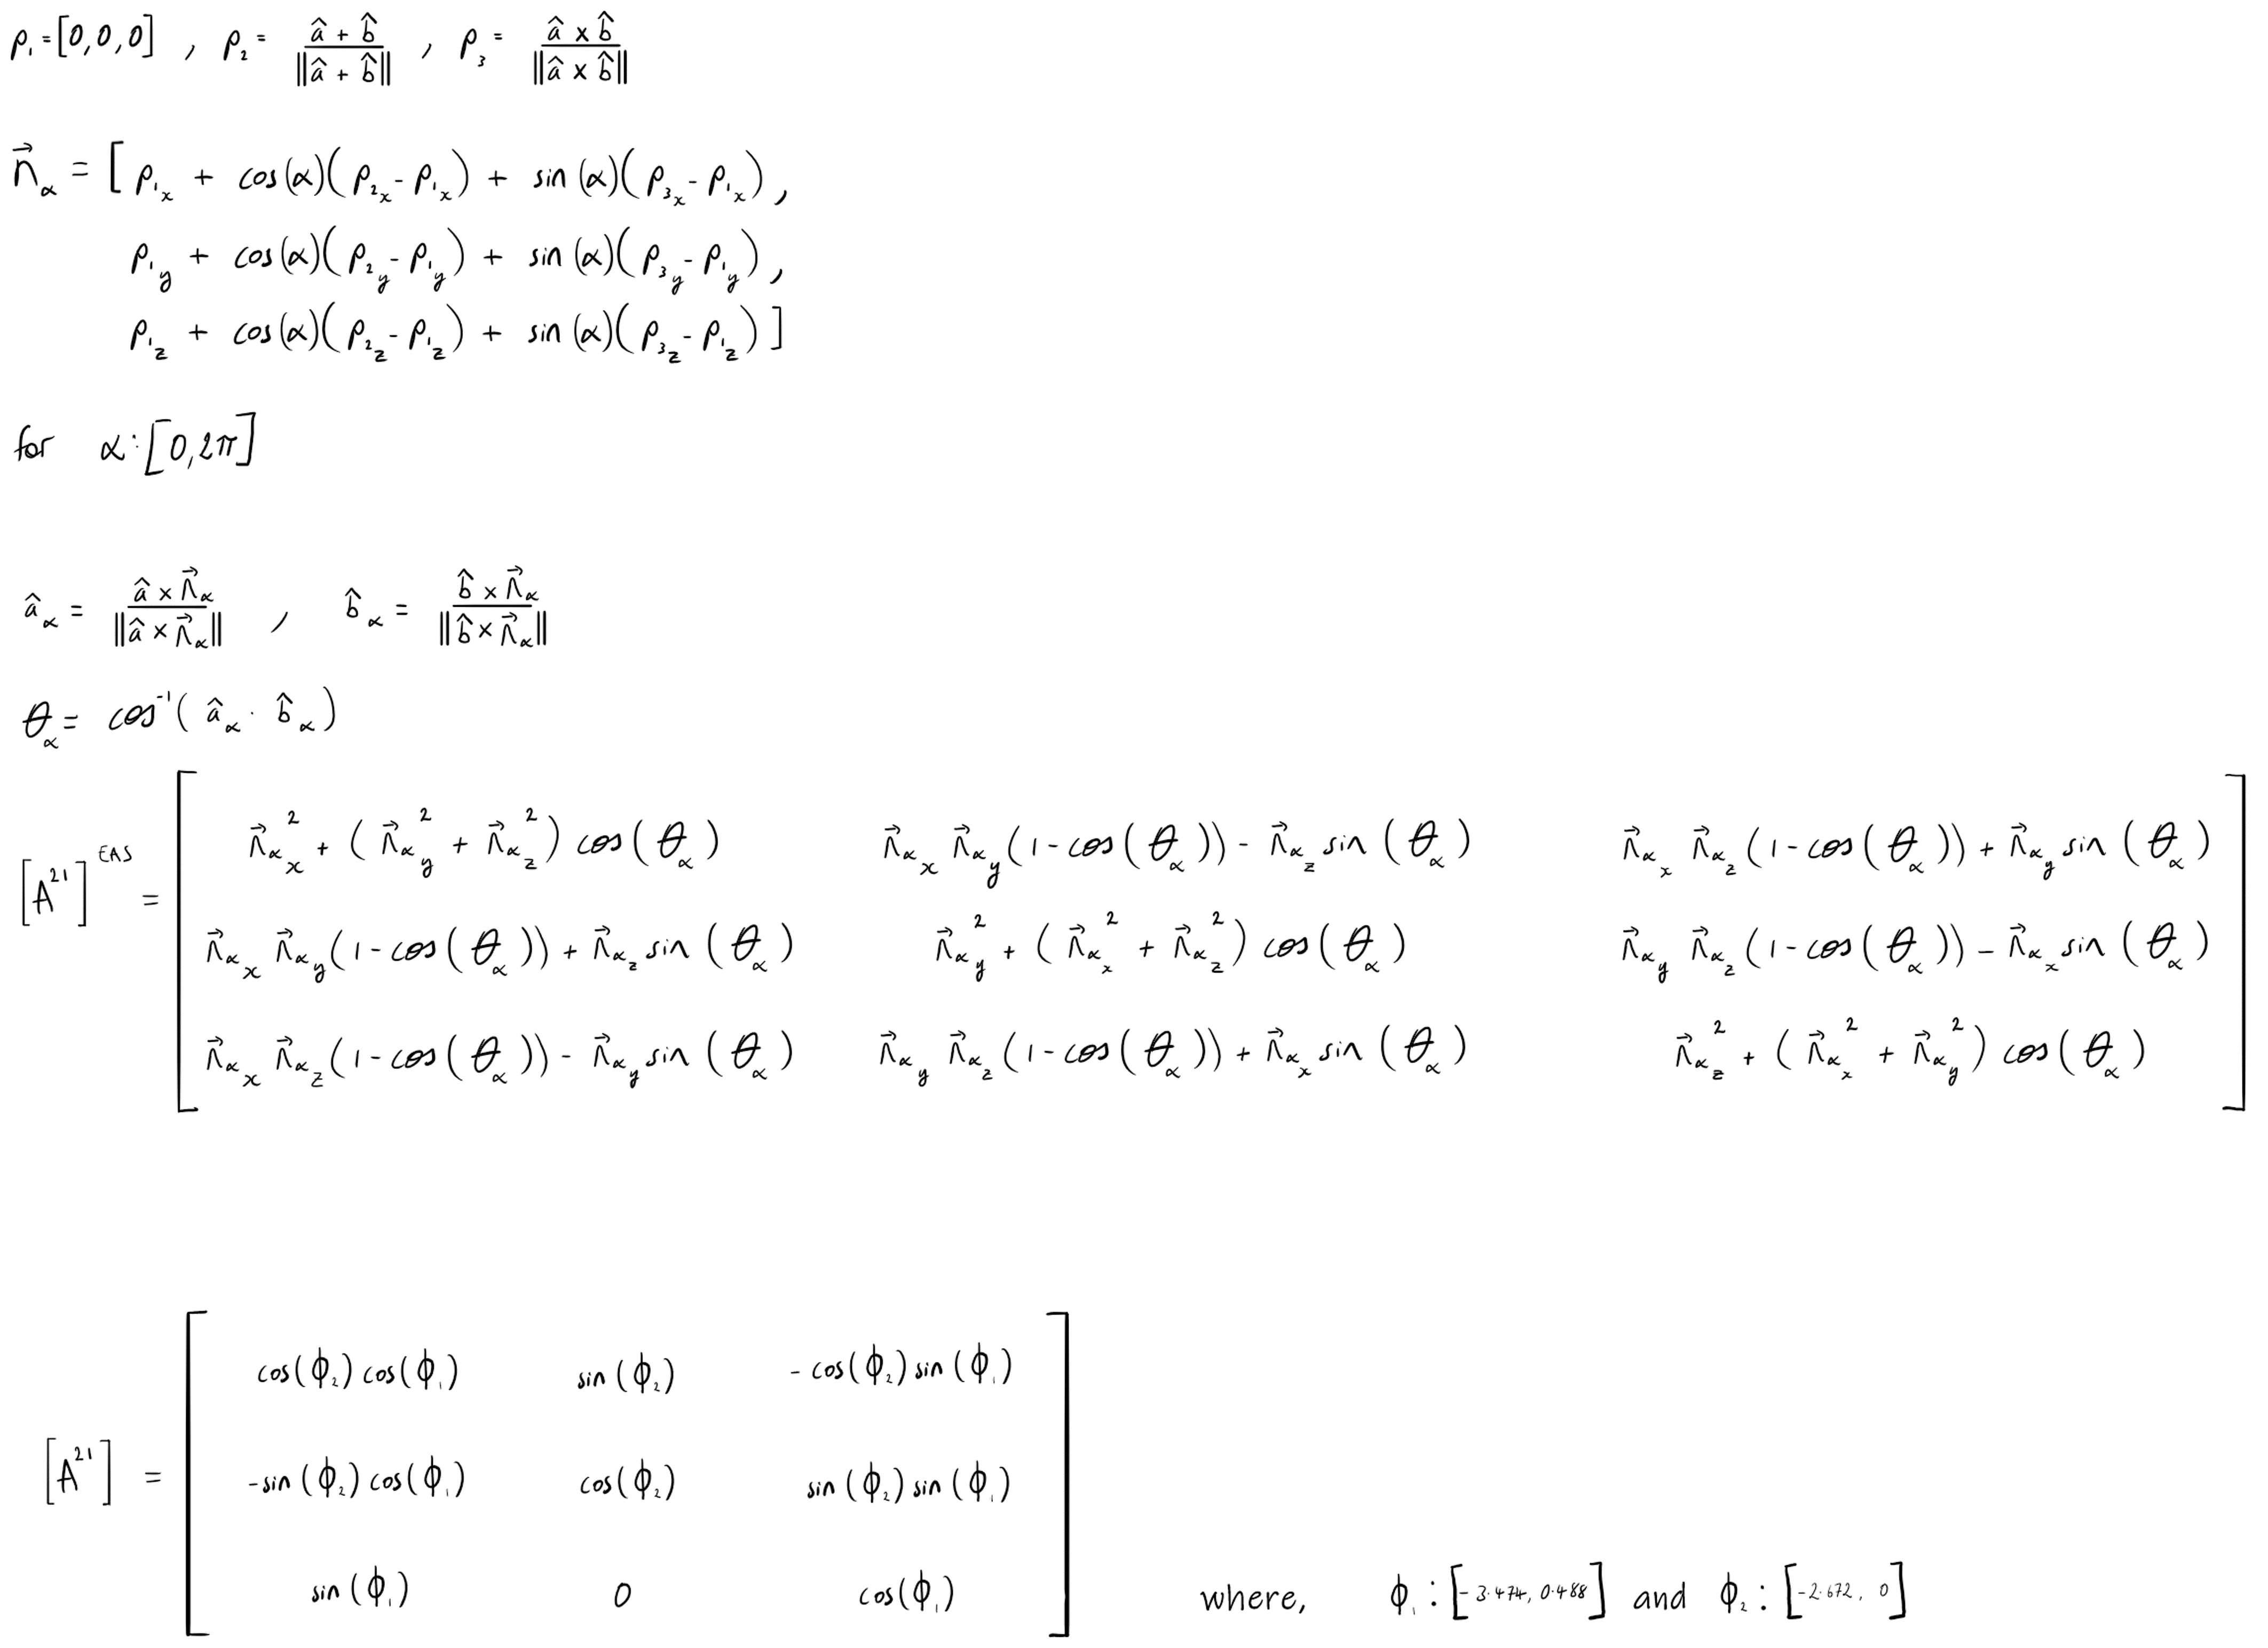 ρ₁ = [0, 0, 0] , ρ₂ = (â + b̂) / ||â + b̂|| , ρ₃ = (â × b̂) / ||â × b̂||
n⃗_α = [ ρ₁ₓ + cos(α)(ρ₂ₓ - ρ₁ₓ) + sin(α)(ρ₃ₓ - ρ₁ₓ) ,
ρ₁_y + cos(α)(ρ₂_y - ρ₁_y) + sin(α)(ρ₃_y - ρ₁_y) ,
ρ₁_z + cos(α)(ρ₂_z - ρ₁_z) + sin(α)(ρ₃_z - ρ₁_z) ]
for α : [0, 2π]
â_α = (â × n⃗_α) / ||â × n⃗_α|| , b̂_α = (b̂ × n⃗_α) / ||b̂ × n⃗_α||
θ_α = cos⁻¹( â_α · b̂_α )
[A²¹]^EAS =
n⃗_αₓ² + ( n⃗_α_y² + n⃗_α_z² ) cos(θ_α) n⃗_αₓ n⃗_α_y (1 - cos(θ_α)) - n⃗_α_z sin(θ_α) n⃗_αₓ n⃗_α_z (1 - cos(θ_α)) + n⃗_α_y sin(θ_α)
n⃗_αₓ n⃗_α_y (1 - cos(θ_α)) + n⃗_α_z sin(θ_α) n⃗_α_y² + ( n⃗_αₓ² + n⃗_α_z² ) cos(θ_α) n⃗_α_y n⃗_α_z (1 - cos(θ_α)) - n⃗_αₓ sin(θ_α)
n⃗_αₓ n⃗_α_z (1 - cos(θ_α)) - n⃗_α_y sin(θ_α) n⃗_α_y n⃗_α_z (1 - cos(θ_α)) + n⃗_αₓ sin(θ_α) n⃗_α_z² + ( n⃗_αₓ² + n⃗_α_y² ) cos(θ_α)
cos(ϕ₂) cos(ϕ₁) sin(ϕ₂) - cos(ϕ₂) sin(ϕ₁)
[A²¹] = -sin(ϕ₂) cos(ϕ₁) cos(ϕ₂) sin(ϕ₂) sin(ϕ₁)
sin(ϕ₁) 0 cos(ϕ₁) where, ϕ₁ : [-3.474, 0.488] and ϕ₂ : [-2.672, 0]